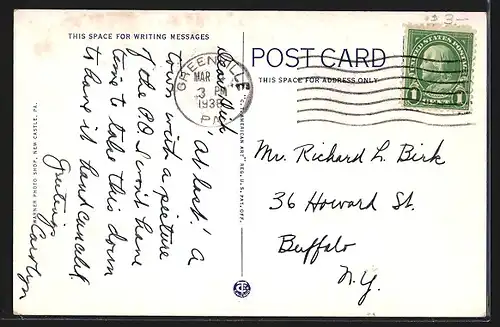 $ 3—
THIS SPACE FOR WRITING MESSAGES
POST CARD
THIS SPACE FOR ADDRESS ONLY
UNITED STATES POSTAGE
1 CENT 1
GREENVILLE
MAR
3 PM
1938
PA.
Dear Dick,
At last! A
town with a picture
of the P.O. I won't have
time to take this down
to have it handcancelled.
Greetings
Carolyn
Mr. Richard L. Birk
36 Howard St.
Buffalo
N.Y.
WARNER PHOTO SHOP, NEW CASTLE, PA.
AMERICAN ART" REG. U.S. PAT. OFF.